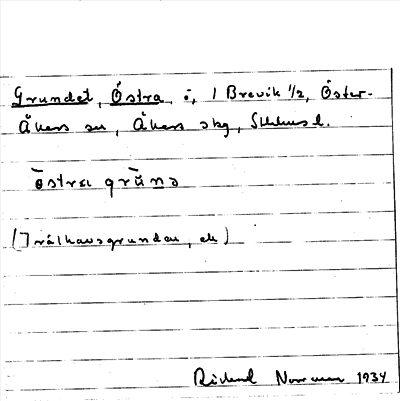 Grundet, Östra, ö, i Brevik 1/2, Öster-
Åkers sn, Åkers skg, Sthlms l.
östra grūnd
(Trälhavsgrunden, ek)
Rickard 1934